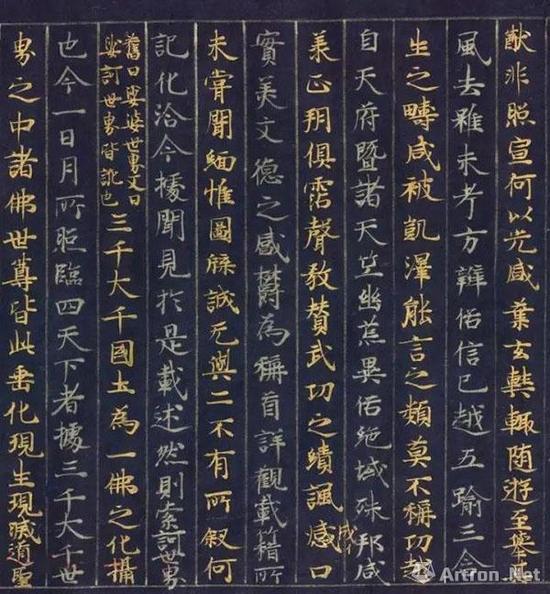 猷非照宣何以光感葉玄奘輒随遊至舉
風去雖未考方辨俗信已越五踰三含
生之疇咸被凱澤能言之類莫不稱功越
自天府暨諸天竺幽荒異俗絶域殊邦咸
承正朔俱霑聲教賛武功之蹟諷感口
成
實美文德之感欝為稱首詳觀載籍所
未甞聞緬惟圖牒誠无與二不有所叙何
記化洽今據聞見於是載述然則索訶世界
舊曰娑婆世界又曰
娑訶世界皆訛也
三千大千國土為一佛之化攝
也今一日月所照臨四天下者據三千大千世
界之中諸佛世尊皆此垂化現生現滅道聖
Artron.Net